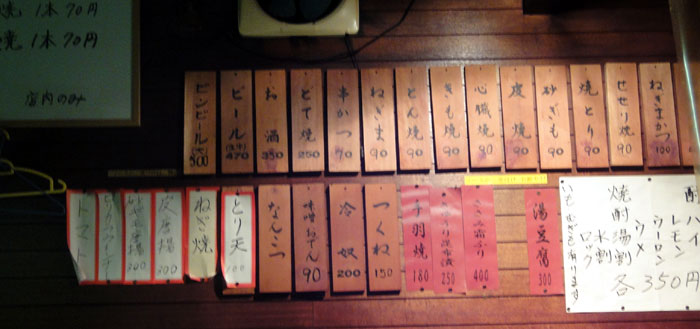 焼 1本 70円
焼 1本 70円
店内のみ
ねぎまかつ 100
せせり焼 90
焼とり 90
砂ぎも 90
皮焼 90
心臓焼 90
きも焼 90
とん焼 90
ねぎま 90
串かつ 90
とて焼 250
お酒 350
ビール 470
ビンビール 500
湯豆腐 300
400
250
手羽焼 180
つくね 150
冷奴 200
味噌おでん 90
なんこつ
とり天
ねぎ焼
皮唐揚 300
300
トマト
酎ハイ
レモン
ウーロン
ウメ
焼酎
湯割
水割
ロック
各350円